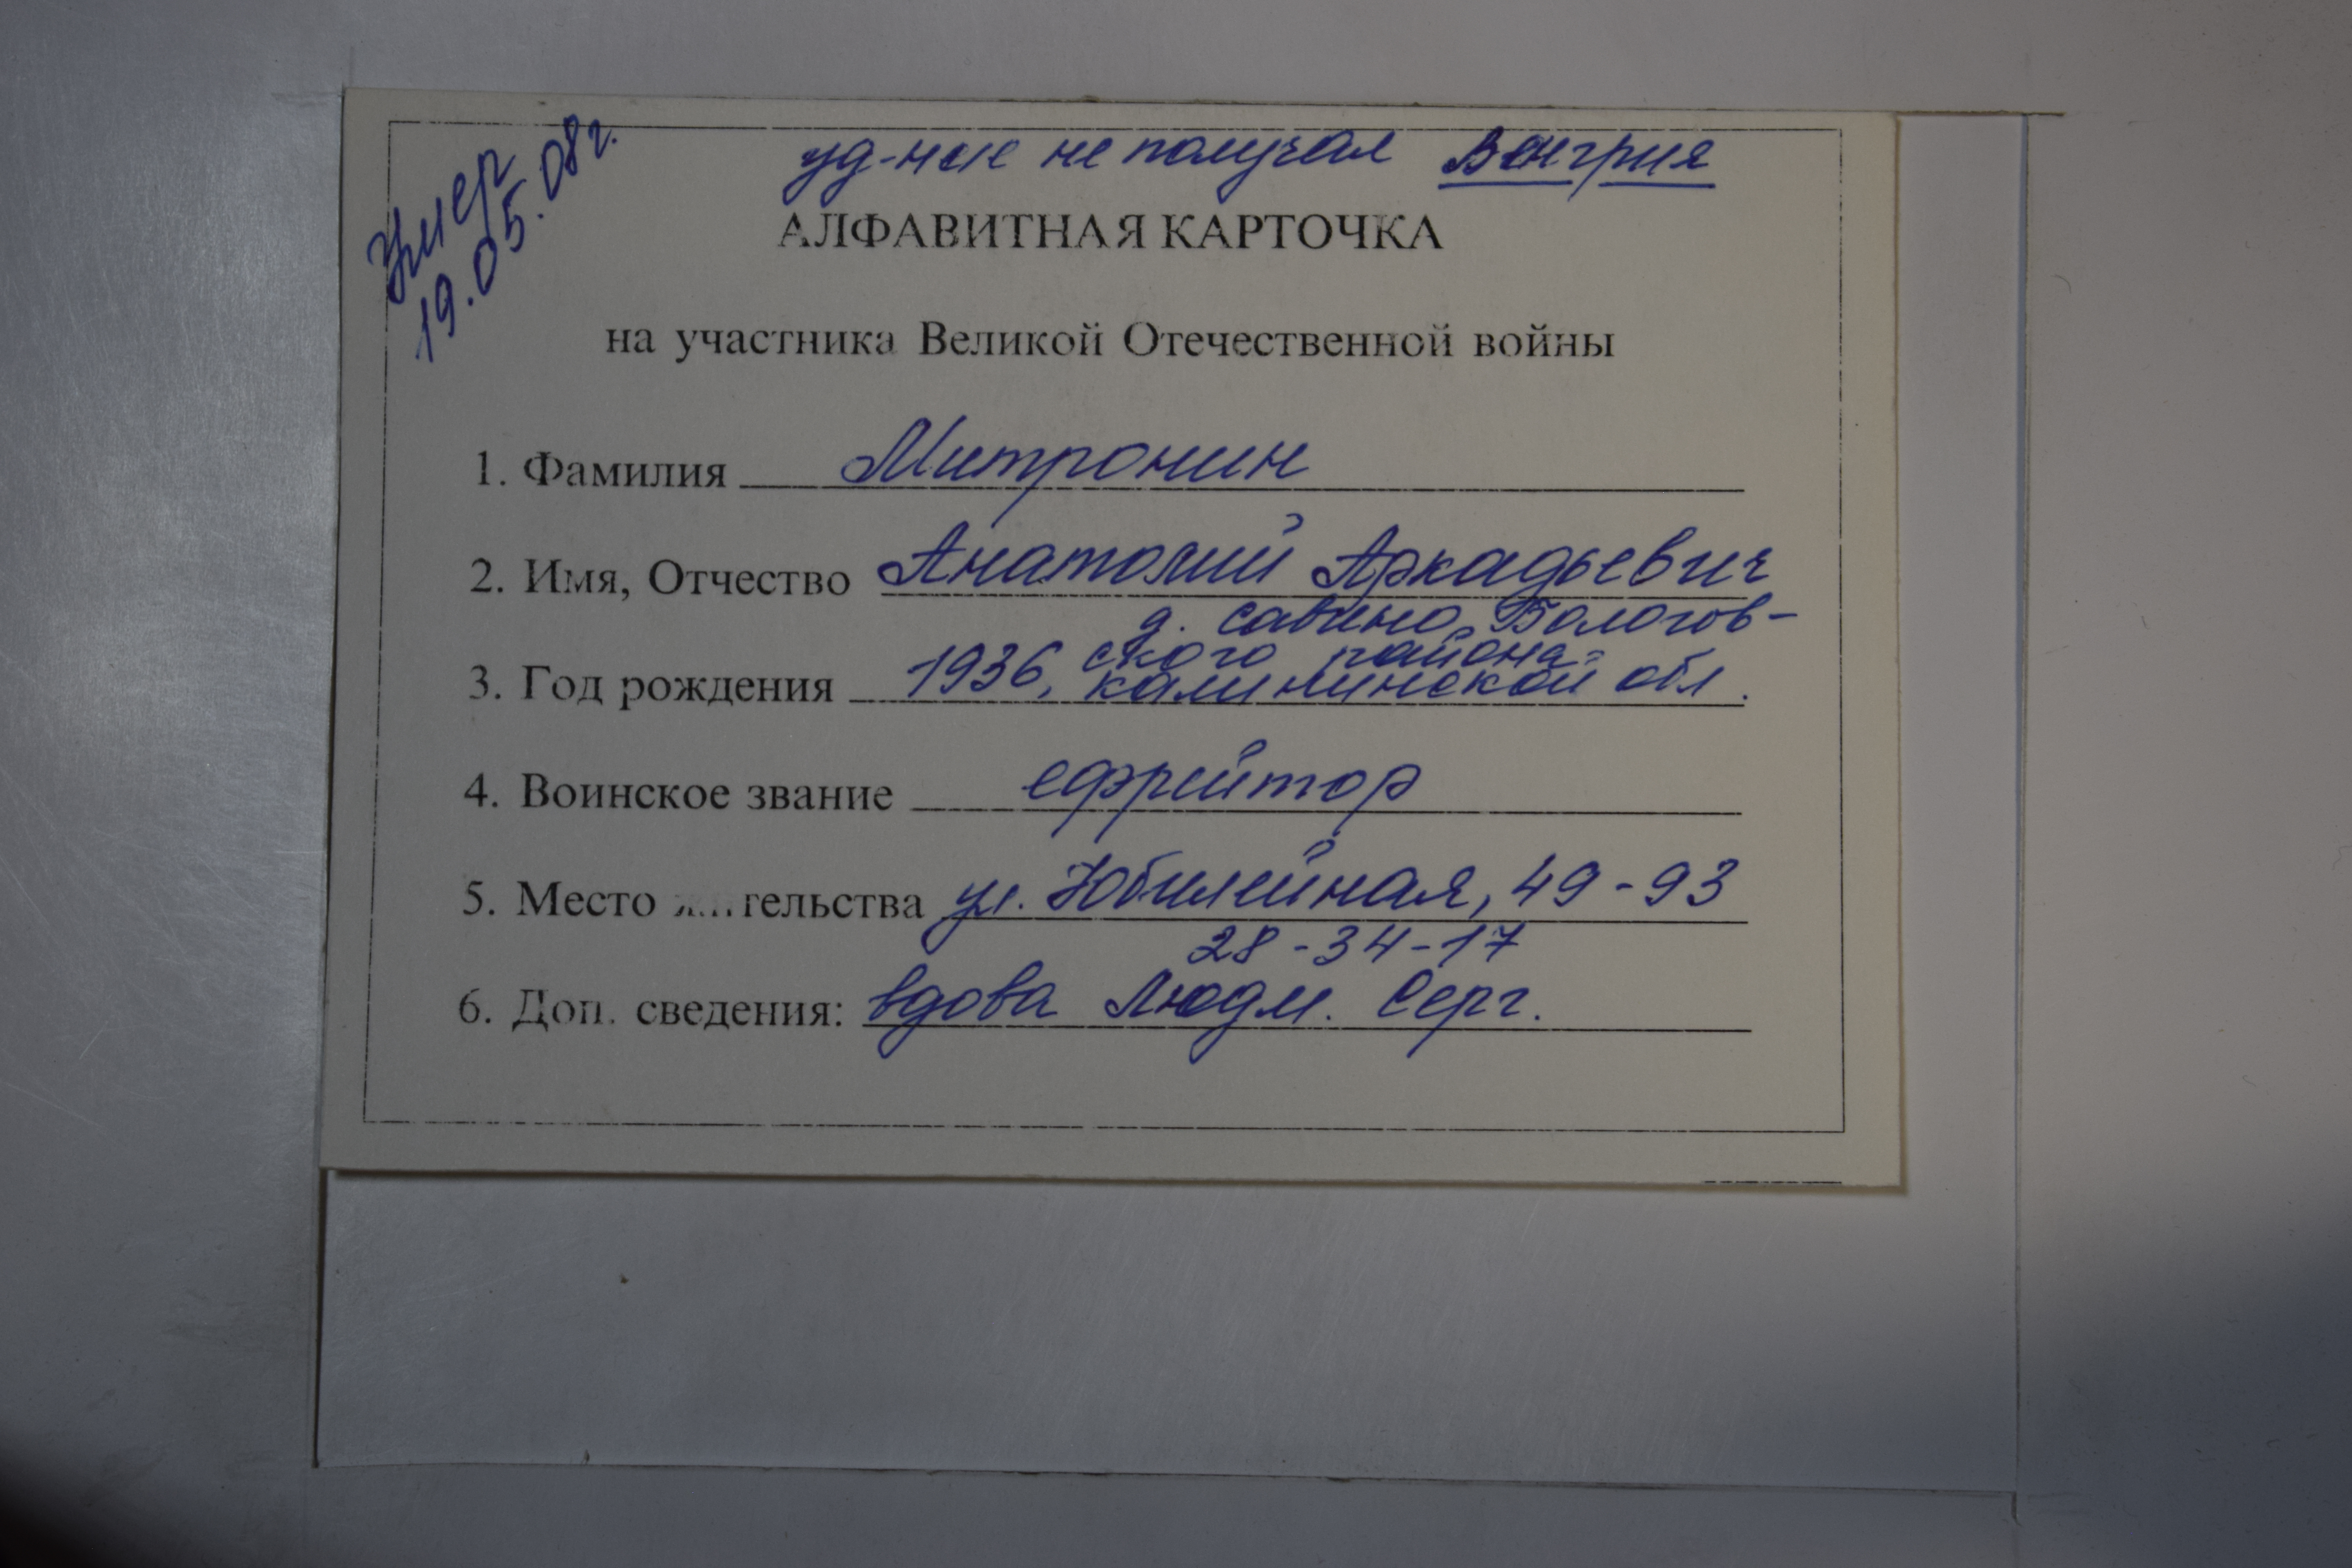 Умер
19.05.08г.
уд-ние не получал Венгрия
АЛФАВИТНАЯ КАРТОЧКА
на участника Великой Отечественной войны
1. Фамилия Митронин
2. Имя, Отчество Анатолий Аркадьевич
д. Савино, Бологов-
ского района
3. Год рождения 1936, Калининской обл.
4. Воинское звание ефрейтор
5. Место жительства ул. Юбилейная, 49-93
28-34-17
6. Доп. сведения: вдова Людм. Серг.